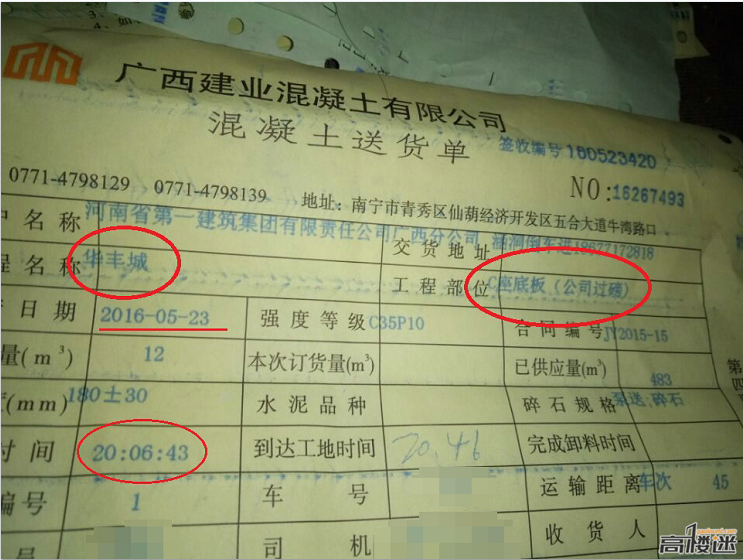 广西建业混凝土有限公司
混凝土送货单
签收编号160523420
0771-4798129 0771-4798139 地址：南宁市青秀区仙葫经济开发区五合大道牛湾路口
NO:16267493
户名称 河南省第一建筑集团有限责任公司广西分公司 交货地址 涵洞倒车进18677172818
程名称 华丰城 工程部位 C座底板（公司过磅）
日期 2016-05-23 强度等级 C35P10 合同编号 JY2015-15
量(m³) 12 本次订货量(m³) 已供应量(m³) 483
第四
(mm) 180士30 水泥品种 碎石规格 泵送,碎石
时间 20:06:43 到达工地时间 20.46 完成卸料时间
编号 1 车号 运输距离 车次 45
号 司机 收货人
高楼迷